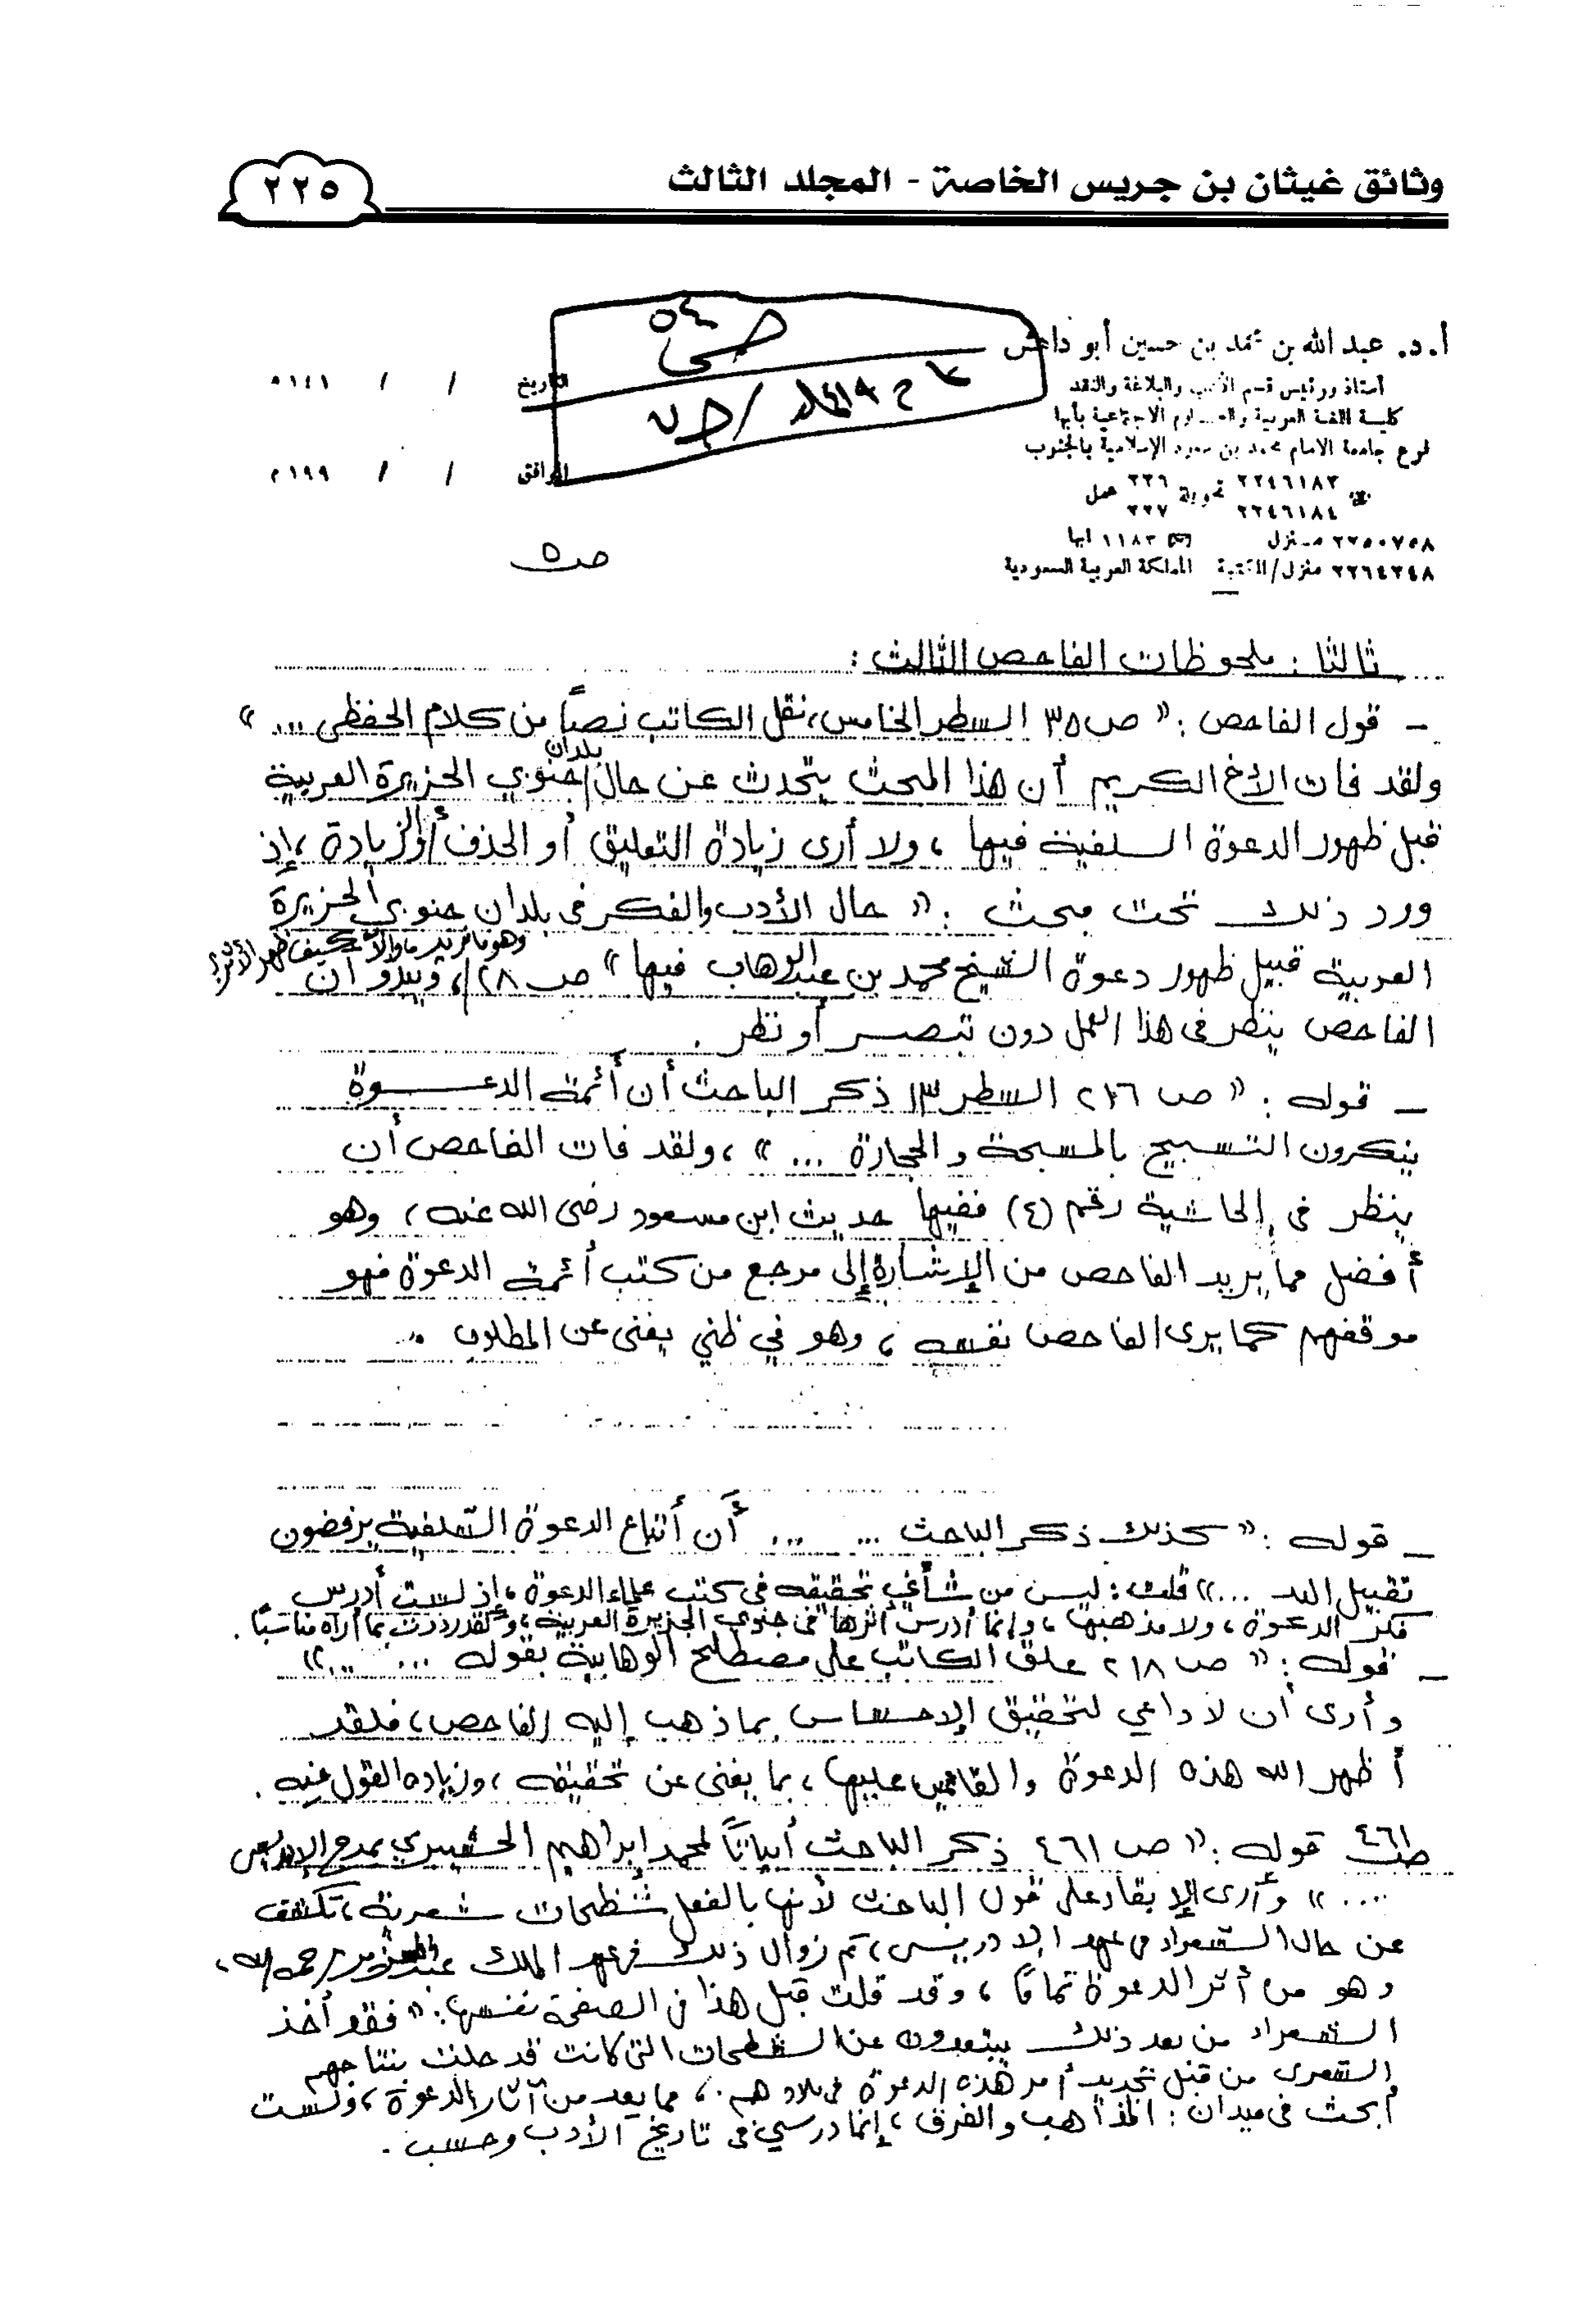 وثائق غيثان بن جريس الخاصة - المجلد الثالث
٢٢٥
أ.د. عبد الله بن محمد بن حسين أبو داهش
أستاذ ورئيس قسم الأدب والبلاغة والنقد
كلية اللغة العربية والعلوم الاجتماعية بأبها
فرع جامعة الامام محمد بن سعود الإسلامية بالجنوب
٢٢٤٦١٨٣ تحويلة ٢٢٦ عمل
٢٢٤٦١٨٤ ٢٢٧
٢٢٥٠٧٥٨ منزل ١١٨٣ ابها
٢٢٦٤٢٤٨ منزل/المكتبة المملكة العربية السعودية
التاريخ / / ١٤١هـ
الموافق / / ١٩٩م
ص ٥٤
ص٥
ثالثا: ملحوظات الفاحص الثالث:
- قول الفاحص: « ص ٣٥ السطر الخامس، نقل الكاتب نصاً من كلام الحفظي ... »
ولقد فات الأخ الكريم أن هذا المبحث يتحدث عن حال بلدان جنوبي الجزيرة العربية
قبل ظهور الدعوة السلفية فيها، ولا أرى زيادة التعليق أو الحذف أو الزيادة، إذ
ورد ذلك تحت مبحث: « حال الأدب والفكر في بلدان جنوبي الجزيرة
العربية قبيل ظهور دعوة الشيخ محمد بن عبدالوهاب فيها » ص ٢٨، وهو ما نريد وإلا كيف ظهر الأثر؟ ويبدو أن
الفاحص ينظر في هذا العمل دون تبصر أو نظر.
- قوله: « ص ٢١٦ السطر ١٣ ذكر الباحث أن أئمة الدعوة
ينكرون التسبيح بالمسبحة والحجارة ... »، ولقد فات الفاحص أن
ينظر في الحاشية رقم (٤) ففيها حديث ابن مسعود رضى الله عنه، وهو
أفضل مما يريد الفاحص من الإشارة إلى مرجع من كتب أئمة الدعوة فهو
موقفهم كما يرى الفاحص نفسه، وهو في ظني يغنى عن المطلوب.
- قوله: « كذلك ذكر الباحث ... ... أن أتباع الدعوة السلفية يرفضون
تقبيل اليد ... » قلت: ليس من شأني تحقيقه في كتب علماء الدعوة، إذ لست أدرس
فكر الدعوة، ولا مذهبها، وإنما أدرس أثرها في جنوبي الجزيرة العربية، ولقد زدت بما أراه مناسباً.
- قوله: « ص ٢١٨ علق الكاتب على مصطلح الوهابية بقوله ... ... »
وأرى أن لا داعي لتحقيق الإحساس بما ذهب إليه الفاحص، فلقد
أظهر الله هذه الدعوة والقائمين عليها، بما يغنى عن تحقيقه، وزيادة القول فيه.
ص ٤٦١ قوله: « ص ٤٦١ ذكر الباحث أبياتاً لمحمد إبراهيم الحشيبري يمدح الإدريسي
.... » وأرى الإبقاء على قول الباحث لأنها بالفعل شطحات شعرية، تكشف
عن حال الشعراء في عهد الإدريسي، ثم زوال ذلك في عهد الملك عبدالعزيز رحمه الله،
وهو من أثر الدعوة تماماً، وقد قلت قبل هذا في الصفحة نفسها: « فقد أخذ
الشعراء من بعد ذلك يبتعدون عن الشطحات التي كانت قد حلت بنتاجهم
الشعرى من قبل تجديد أمر هذه الدعوة في بلادهم.، مما يعد من آثار الدعوة، ولست
أبحث في ميدان: المذاهب والفرق، إنما درسي في تاريخ الأدب وحسب.